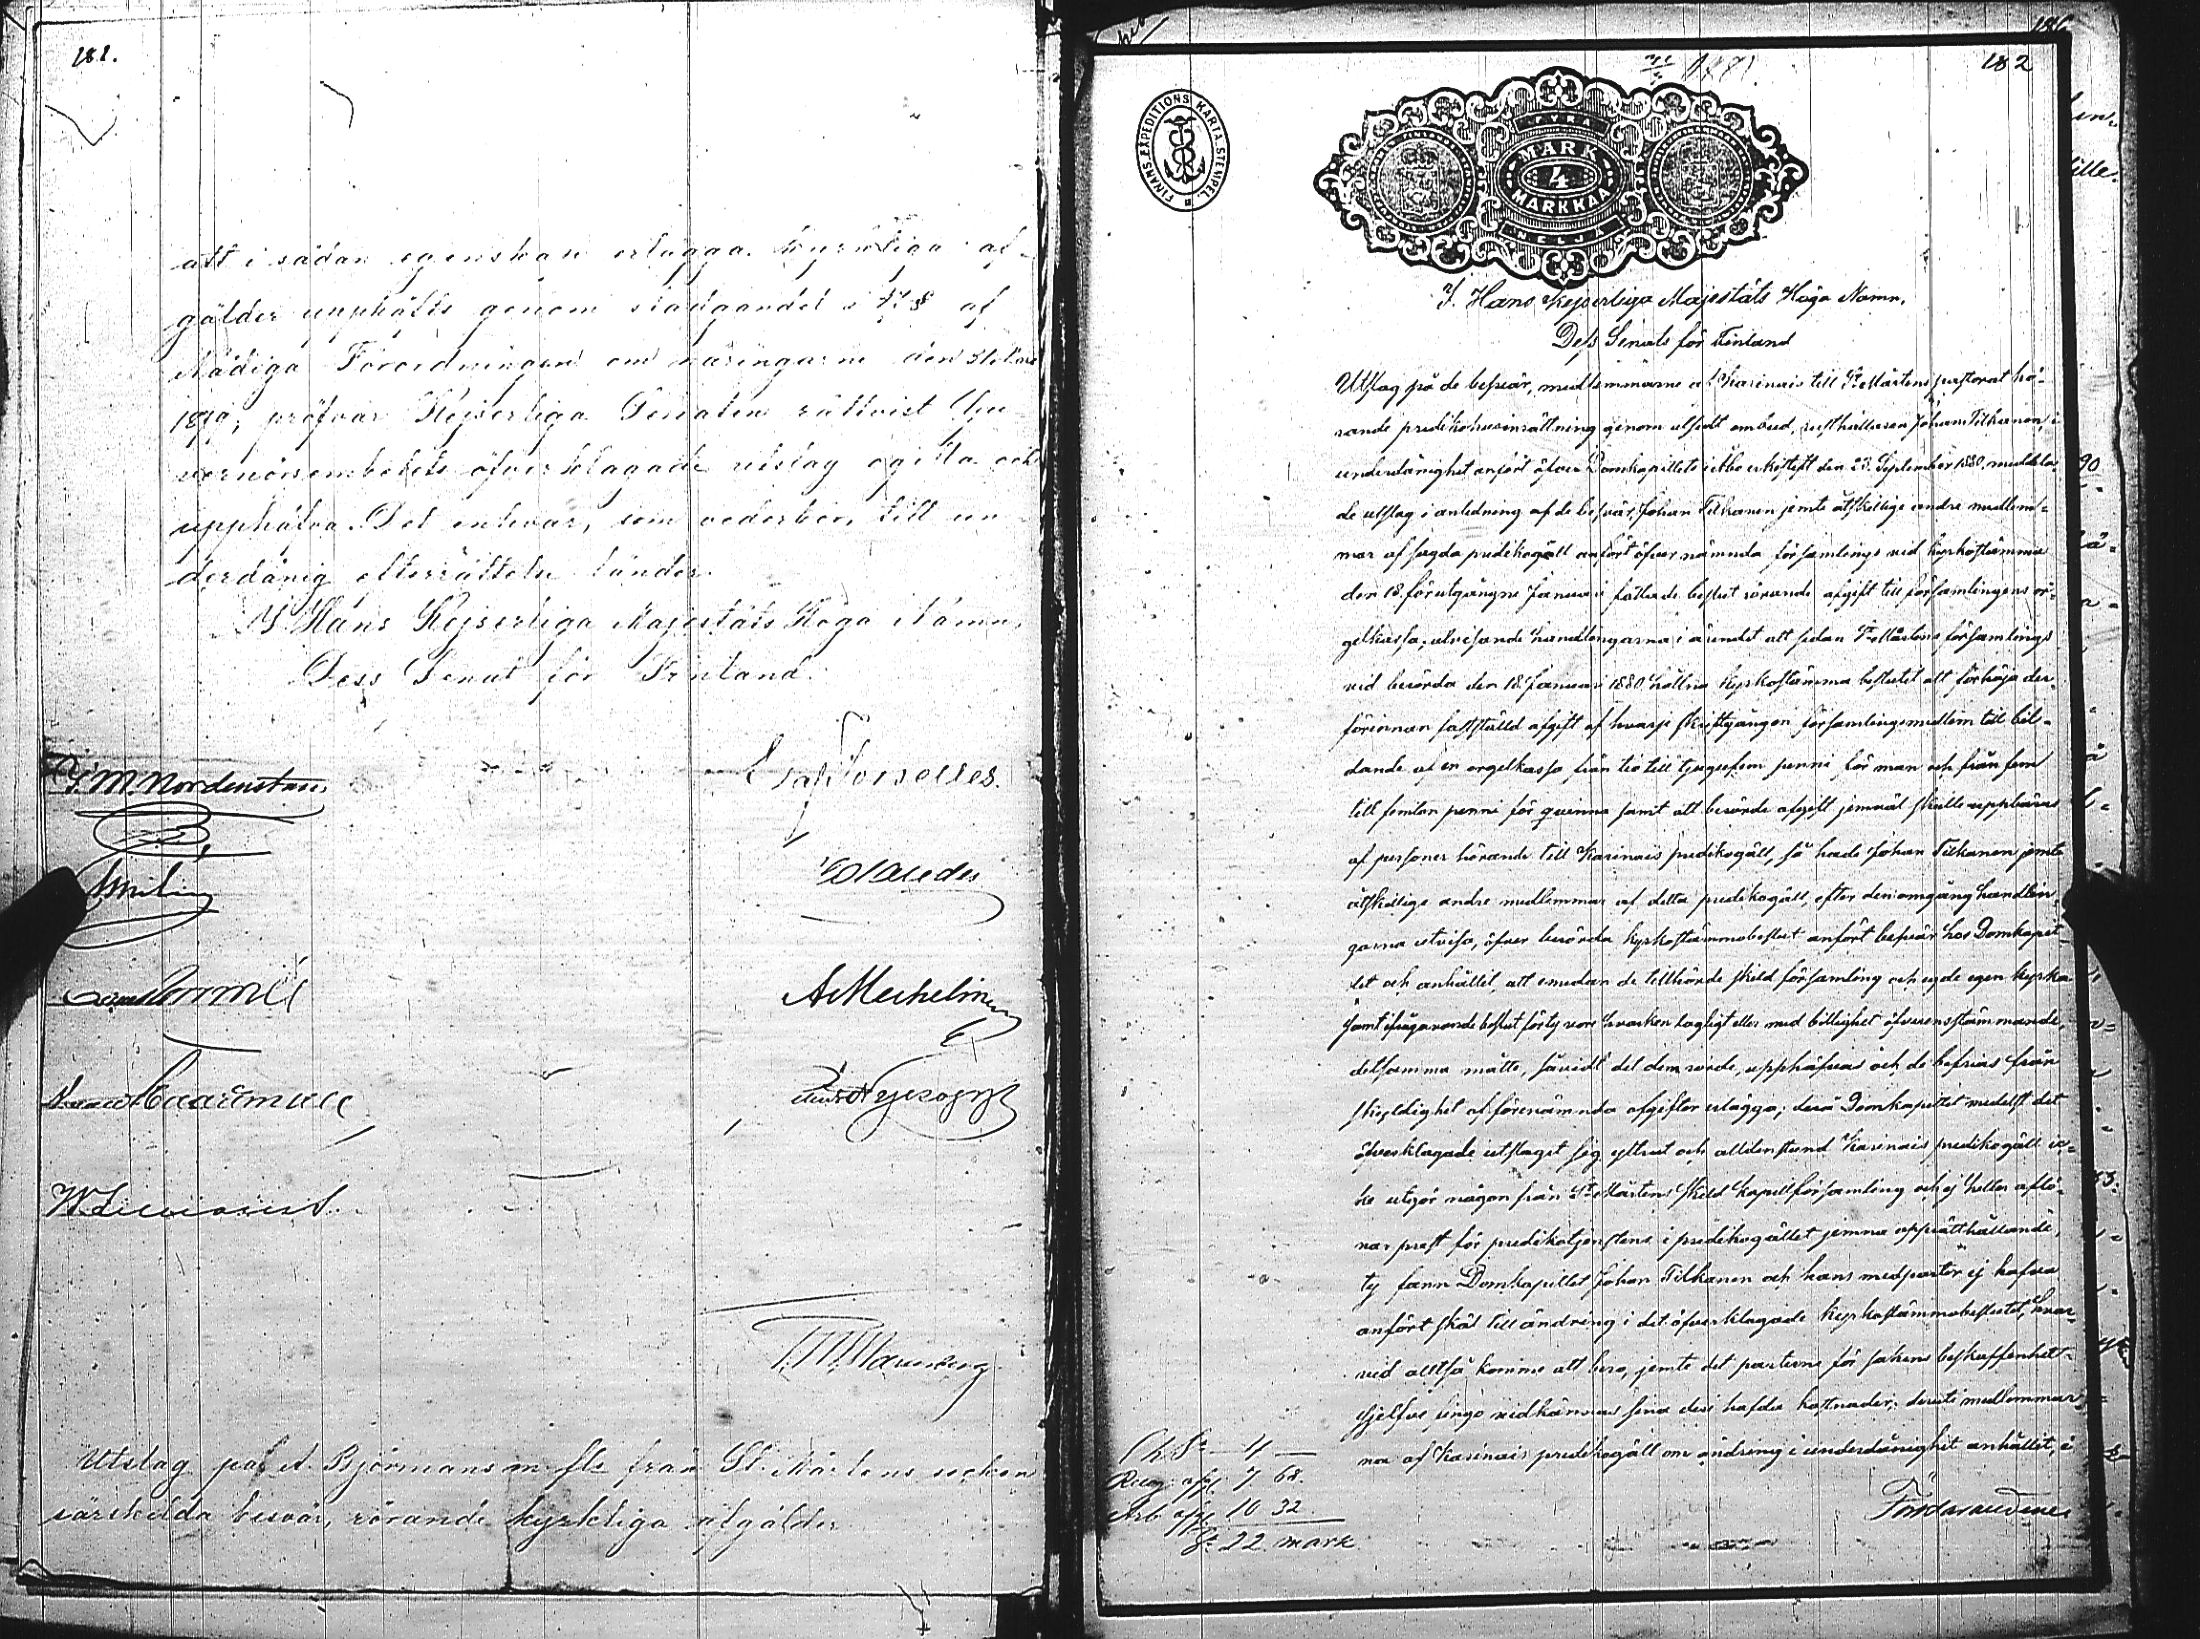 181.
att i sådan egenskap erlägga kyrkliga af-
gälder upphäfts genom stadgandet i 17 § af
Nådiga Förordningen om näringarne den 31 Mars
1879; pröfvar Kejserliga Senaten rättvist Gu-
vernörsembetets öfverklagade utslag ogilla och
upphäfva. Det enhvar, som vederbör, till un-
derdånig efterrättelse länder.
I Hans Kejserliga Majestäts Höga Namn,
Dess Senat för Finland.
J M Nordenstam
A Mechelin
Utslag på A. Björmans m fl. från St. Mårtens socken
särskilda besvär, rörande kyrkliga afgälder
182
1881
FINANS EXPEDITIONS KARTA STEMPEL
FYRA
MARK
4
MARKKAA
NELJÄ
I Hans Kejserliga Majestäts Höga Namn,
Dess Senats för Finland
Utslag på de besvär, medlemmarne af Karinais till St. Mårtens pastorat hö-
rande predikohusinrättning genom utsedt ombud, rusthållaren Johan Tilkanen, i
underdånighet anfört öfver Domkapitlets i Åbo erkestift den 23 September 1880 meddela-
de utslag i anledning af de besvär, Johan Tilkanen jemte åtskillige andre medlem-
mar af sagda predikogäll anfört öfver nämnda församlings vid kyrkostämma
den 18 förutgångne Januari fattade beslut rörande afgift till församlingens or-
gelkassa; utvisande handlingarna i ämnet att sedan St. Mårtens församling
vid berörda den 18 Januari 1880 hållna kyrkostämma beslutet att förhöja der-
förinnan fastställd afgift af hvarje skriftgången församlingsmedlem till bil-
dande af en orgelkassa från tio till tjugufem penni för man och från fem
till femton penni för qvinna samt att berörde afgift jemväl skulle uppbäras
af personer hörande till Karinais predikogäll, så hade Johan Tilkanen jemte
åtskillige andre medlemmar af detta predikogäll, efter den omgång handlin-
garna utvisa, öfver berörda kyrkostämmobeslut anfört besvär hos Domkapit-
let och anhållit, att emedan de tillhörde skild församling och egde egen kyrka
samt ifrågavarande beslut förty vore hvarken lagligt eller med billighet öfverensstämmande,
detsamma måtte, såvidt det dem rörde, upphäfvas och de befrias från
skyldighet att förenämnda afgifter erlägga; derå Domkapitlet medelst det
öfverklagade utslaget sig yttrat och alldenstund Karinais predikogäll ic-
ke utgör någon från St. Mårtens skild kapellförsamling och ej heller aflö-
nar prest för predikotjenstens i predikogället jemna upprätthållande,
ty fann Domkapitlet Johan Tilkanen och hans medparter ej hafva
anfört skäl till ändring i det öfverklagade kyrkostämmobeslutet, hvar-
vid alltså komme att bero, jemte det parterne för sakens beskaffenhet
sjelfve finge vidkännas sina deri hafda kostnader; deruti medlemmar-
na af Karinais predikogäll om ändring i underdånighet anhållit, i
Ch S. 4 —
7 68.
10 32
S:a 22 mark